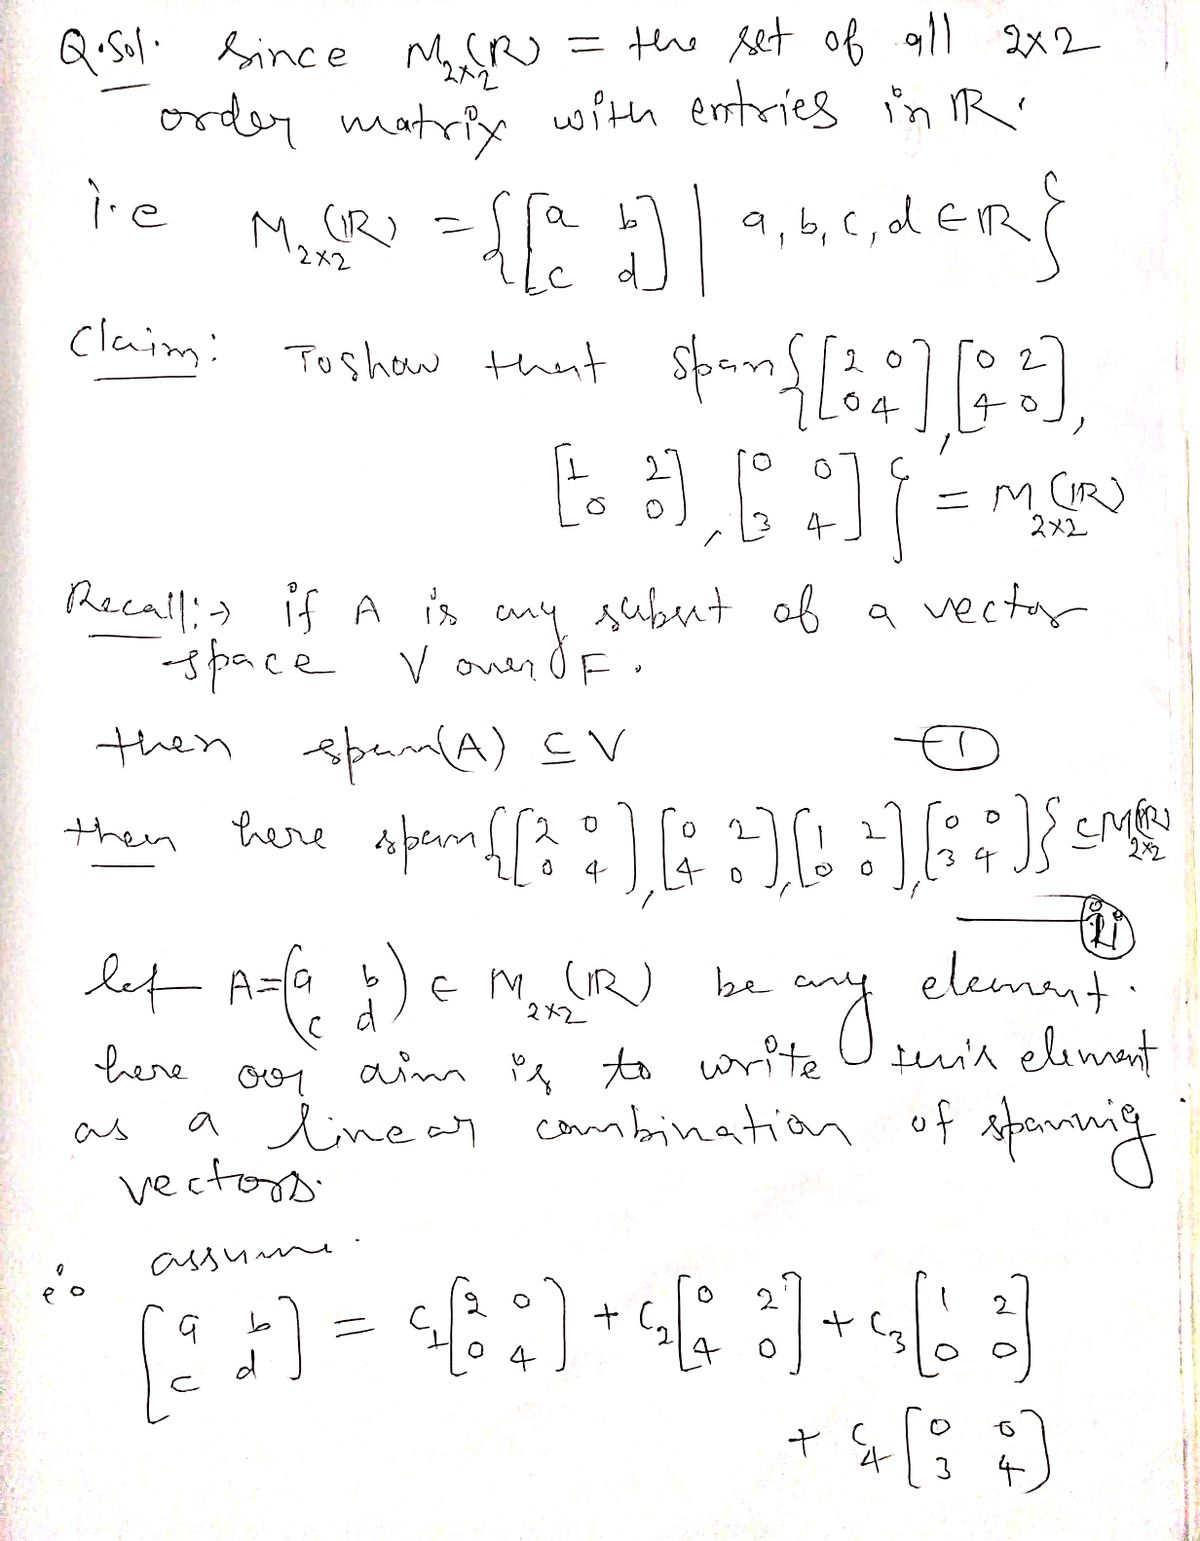 Q.Sol. Since M₂ₓ₂(ℝ) = the set of all 2x2
order matrix with entries in ℝ.
i.e M₂ₓ₂(ℝ) = {[a b; c d] | a, b, c, d ∈ ℝ}
Claim: To show that span{[2 0; 0 4], [0 2; 4 0],
[1 2; 0 0], [0 0; 3 4]} = M₂ₓ₂(ℝ)
Recall:→ if A is any subset of a vector
space V over F.
then span(A) ⊆ V —(1)
then here span{[2 0; 0 4], [0 2; 4 0], [1 2; 0 0], [0 0; 3 4]} ⊆ M₂ₓ₂(ℝ)
—(ii)
let A=(a b; c d) ∈ M₂ₓ₂(ℝ) be any element.
here our aim is to write this element
as a linear combination of spannig
vectors.
assume.
[a b; c d] = c₁[2 0; 0 4] + c₂[0 2; 4 0] + c₃[1 2; 0 0]
+ c₄[0 0; 3 4]